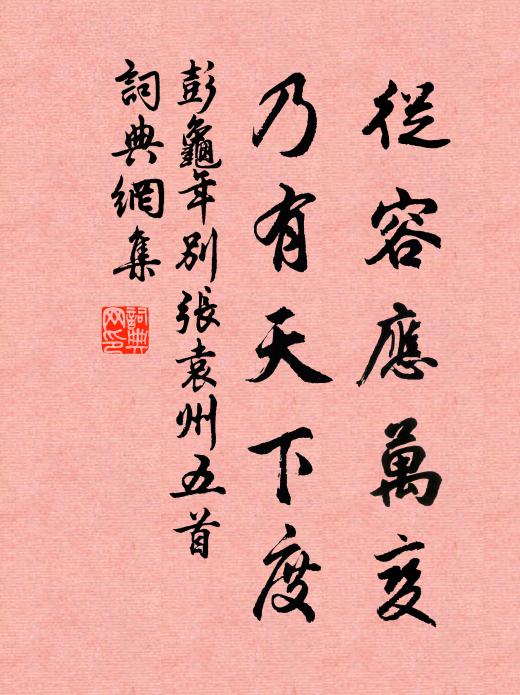 從容應萬变
乃有天下度
彭龜年別張袁州五首
詞典網集
詞典
网印